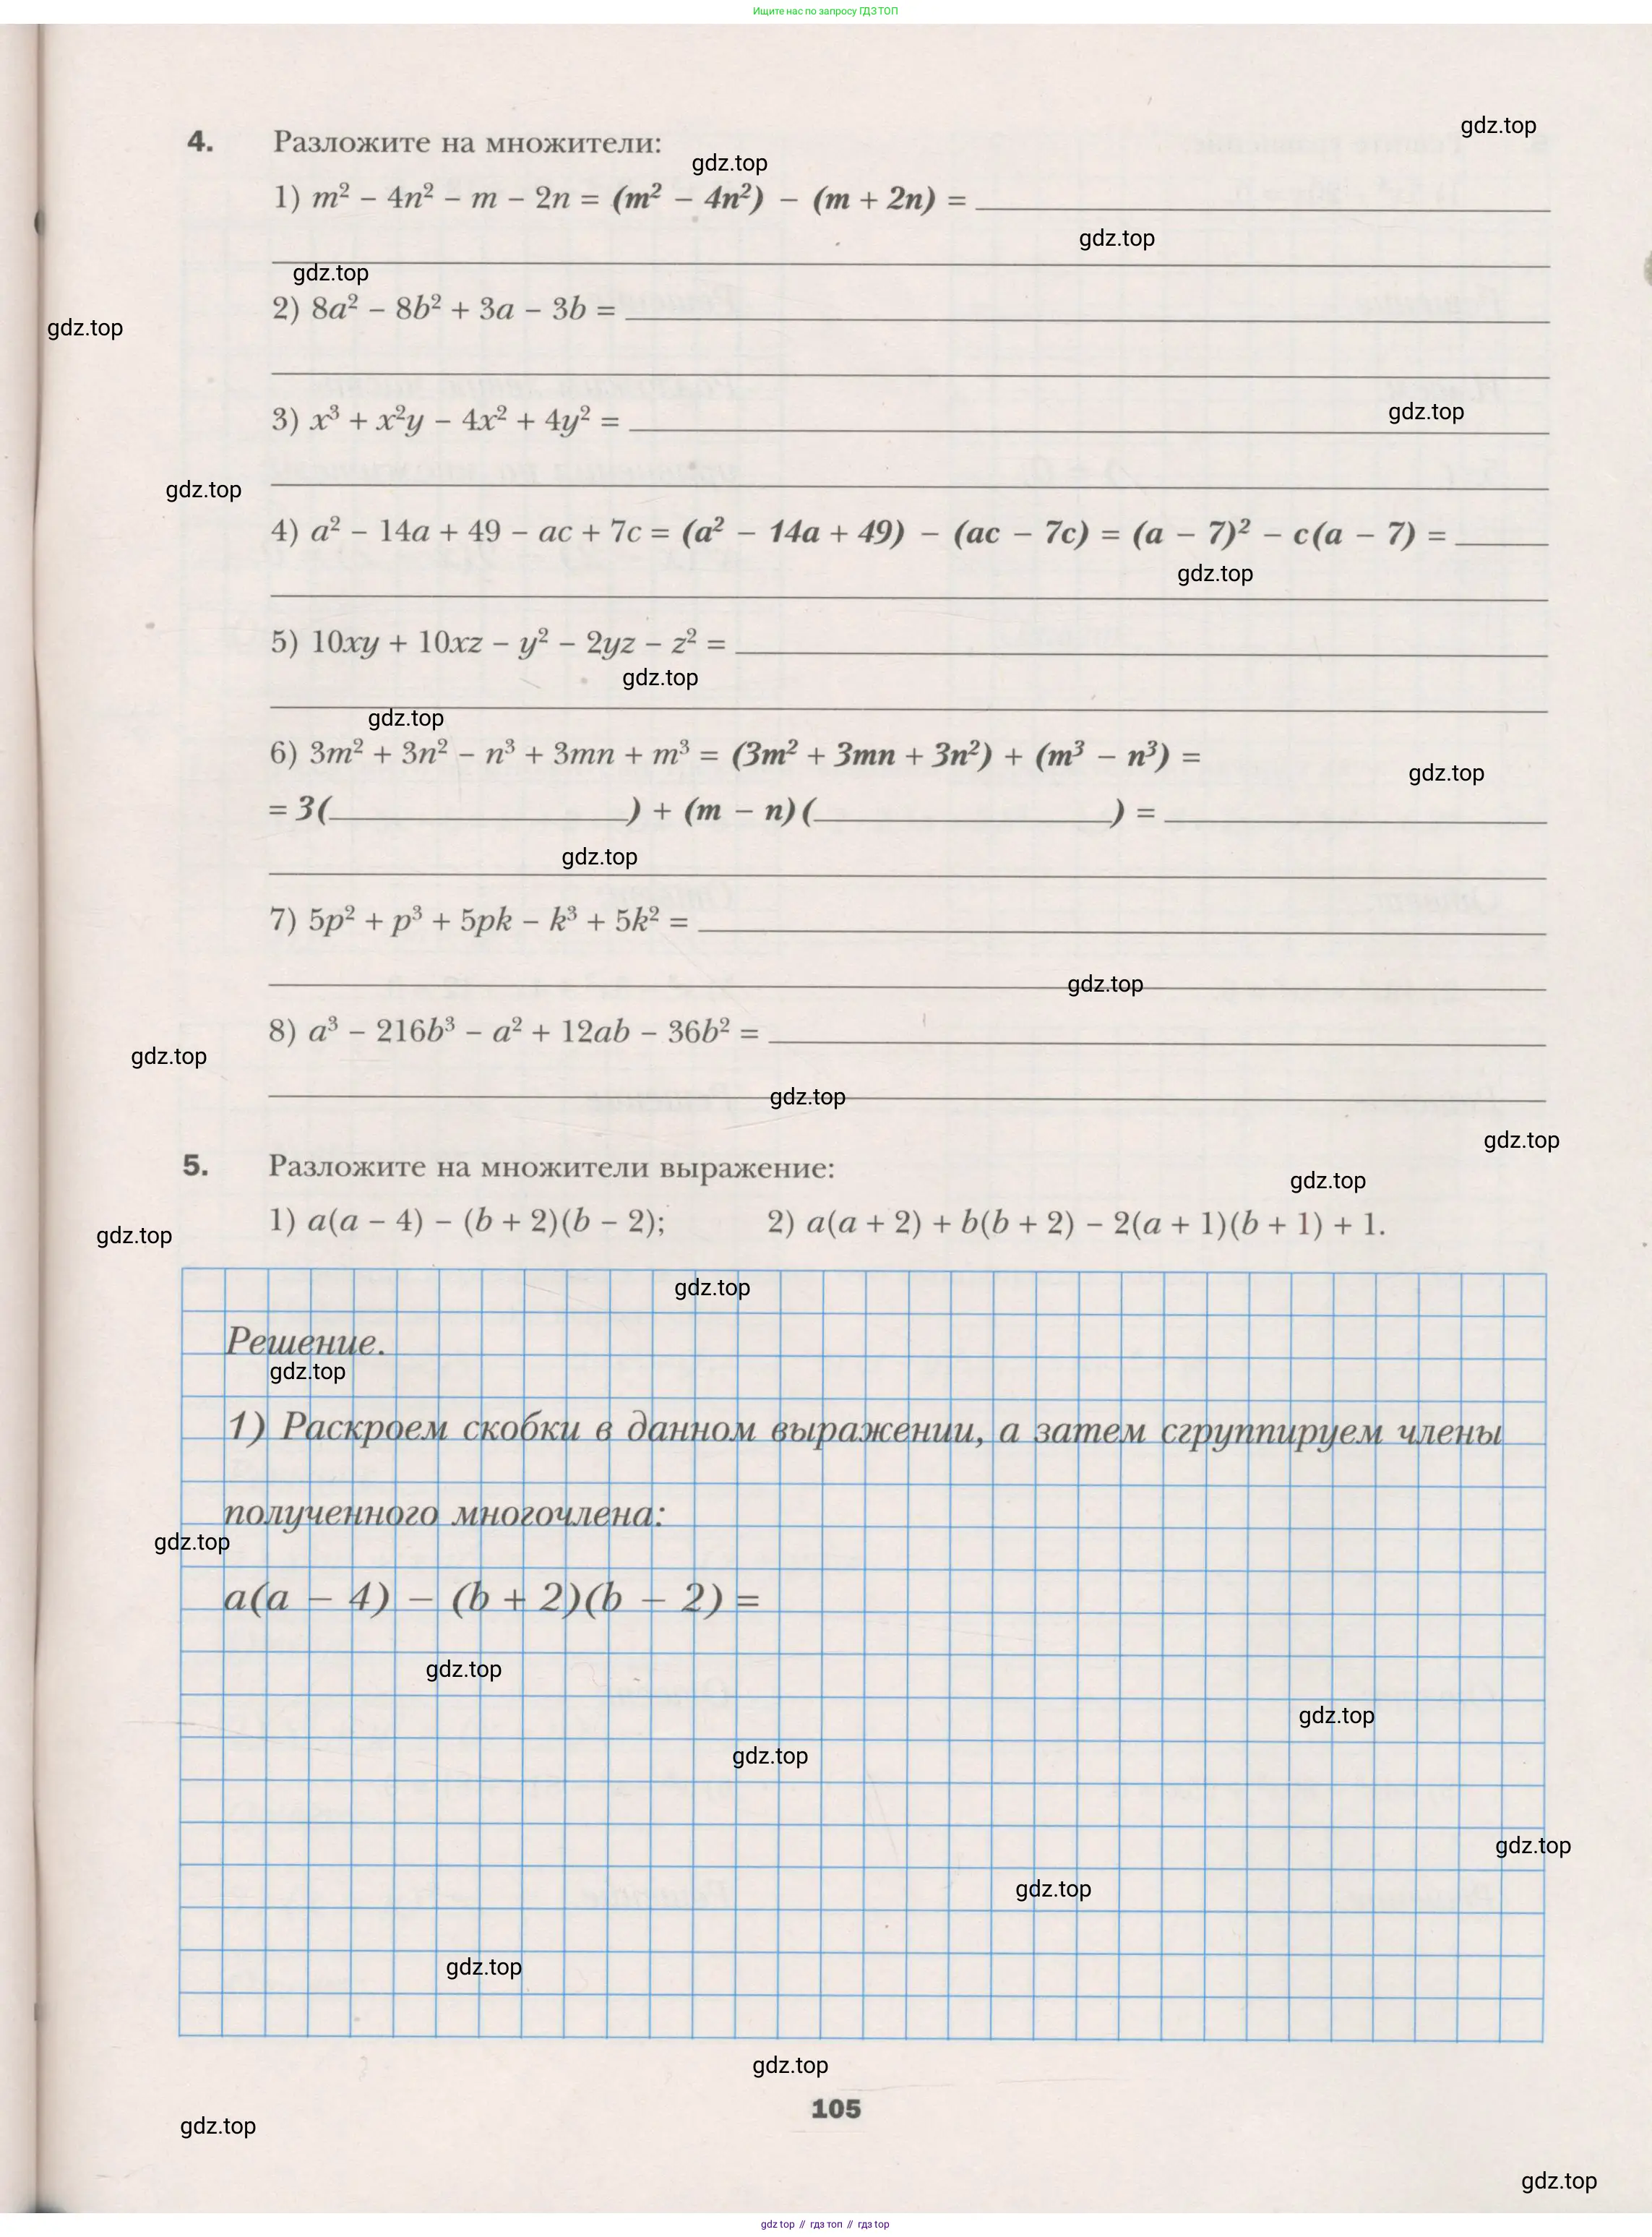 Ищите нас по запросу ГДЗ ТОП
gdz.top
4. Разложите на множители:
gdz.top
1) m² – 4n² – m – 2n = (m² – 4n²) – (m + 2n) =
gdz.top
gdz.top
2) 8a² – 8b² + 3a – 3b =
gdz.top
3) x³ + x²y – 4x² + 4y² =
gdz.top
gdz.top
4) a² – 14a + 49 – ac + 7c = (a² – 14a + 49) – (ac – 7c) = (a – 7)² – c(a – 7) =
gdz.top
5) 10xy + 10xz – y² – 2yz – z² =
gdz.top
gdz.top
6) 3m² + 3n² – n³ + 3mn + m³ = (3m² + 3mn + 3n²) + (m³ – n³) =
gdz.top
= 3( ) + (m – n)( ) =
gdz.top
7) 5p² + p³ + 5pk – k³ + 5k² =
gdz.top
8) a³ – 216b³ – a² + 12ab – 36b² =
gdz.top
gdz.top
gdz.top
5. Разложите на множители выражение:
gdz.top
1) a(a – 4) – (b + 2)(b – 2); 2) a(a + 2) + b(b + 2) – 2(a + 1)(b + 1) + 1.
gdz.top
gdz.top
Решение.
gdz.top
1) Раскроем скобки в данном выражении, а затем сгруппируем члены
полученного многочлена:
gdz.top
a(a – 4) – (b + 2)(b – 2) =
gdz.top
gdz.top
gdz.top
gdz.top
gdz.top
gdz.top
gdz.top
105
gdz.top
gdz.top
gdz top // гдз топ // гдз top